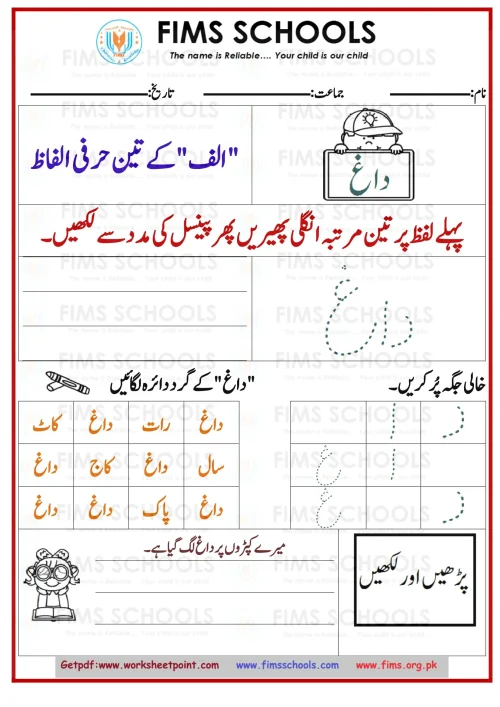 FIMS SCHOOLS
The name is Reliable.... Your child is our child
نام:__________ جماعت:__________ تاریخ:__________
داغ
"الف" کے تین حرفی الفاظ
پہلے لفظ پر تین مرتبہ انگلی پھیریں پھر پینسل کی مدد سے لکھیں۔
داغ
خالی جگہ پُر کریں۔
"داغ" کے گرد دائرہ لگائیں
د ا
ا غ
د غ
داغ رات داغ کاٹ
سال داغ کاج داغ
داغ پاک داغ داغ
پڑھیں اور لکھیں
میرے کپڑوں پر داغ لگ گیا ہے۔
Getpdf:www.worksheetpoint.com www.fimsschools.com www.fims.org.pk